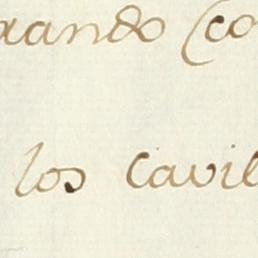 ando (co
los cavil